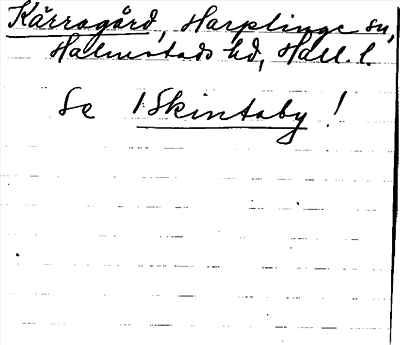 Kärragård, Harplinge sn,
Halmstads hd, Hall. l.
Se 1 Skintaby !